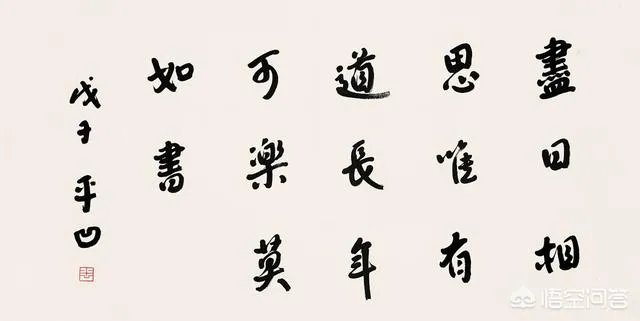 盡日相
思唯有
道長年
可樂莫
如書
戊子 平凹
悟空问答